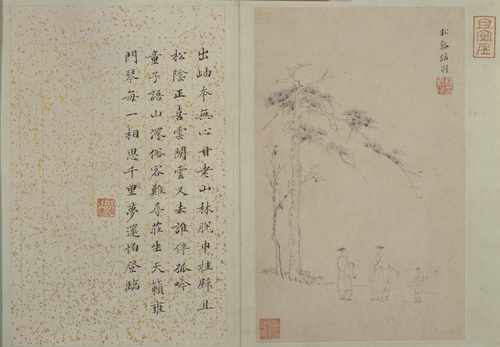 松谿
出岫本無心甘老山林脫巾挂壁且
松陰正喜雲開雲又去誰伴孤吟
童子語山深俗客難尋莊生天籟雍
門琴每一相思千里夢還怕登臨